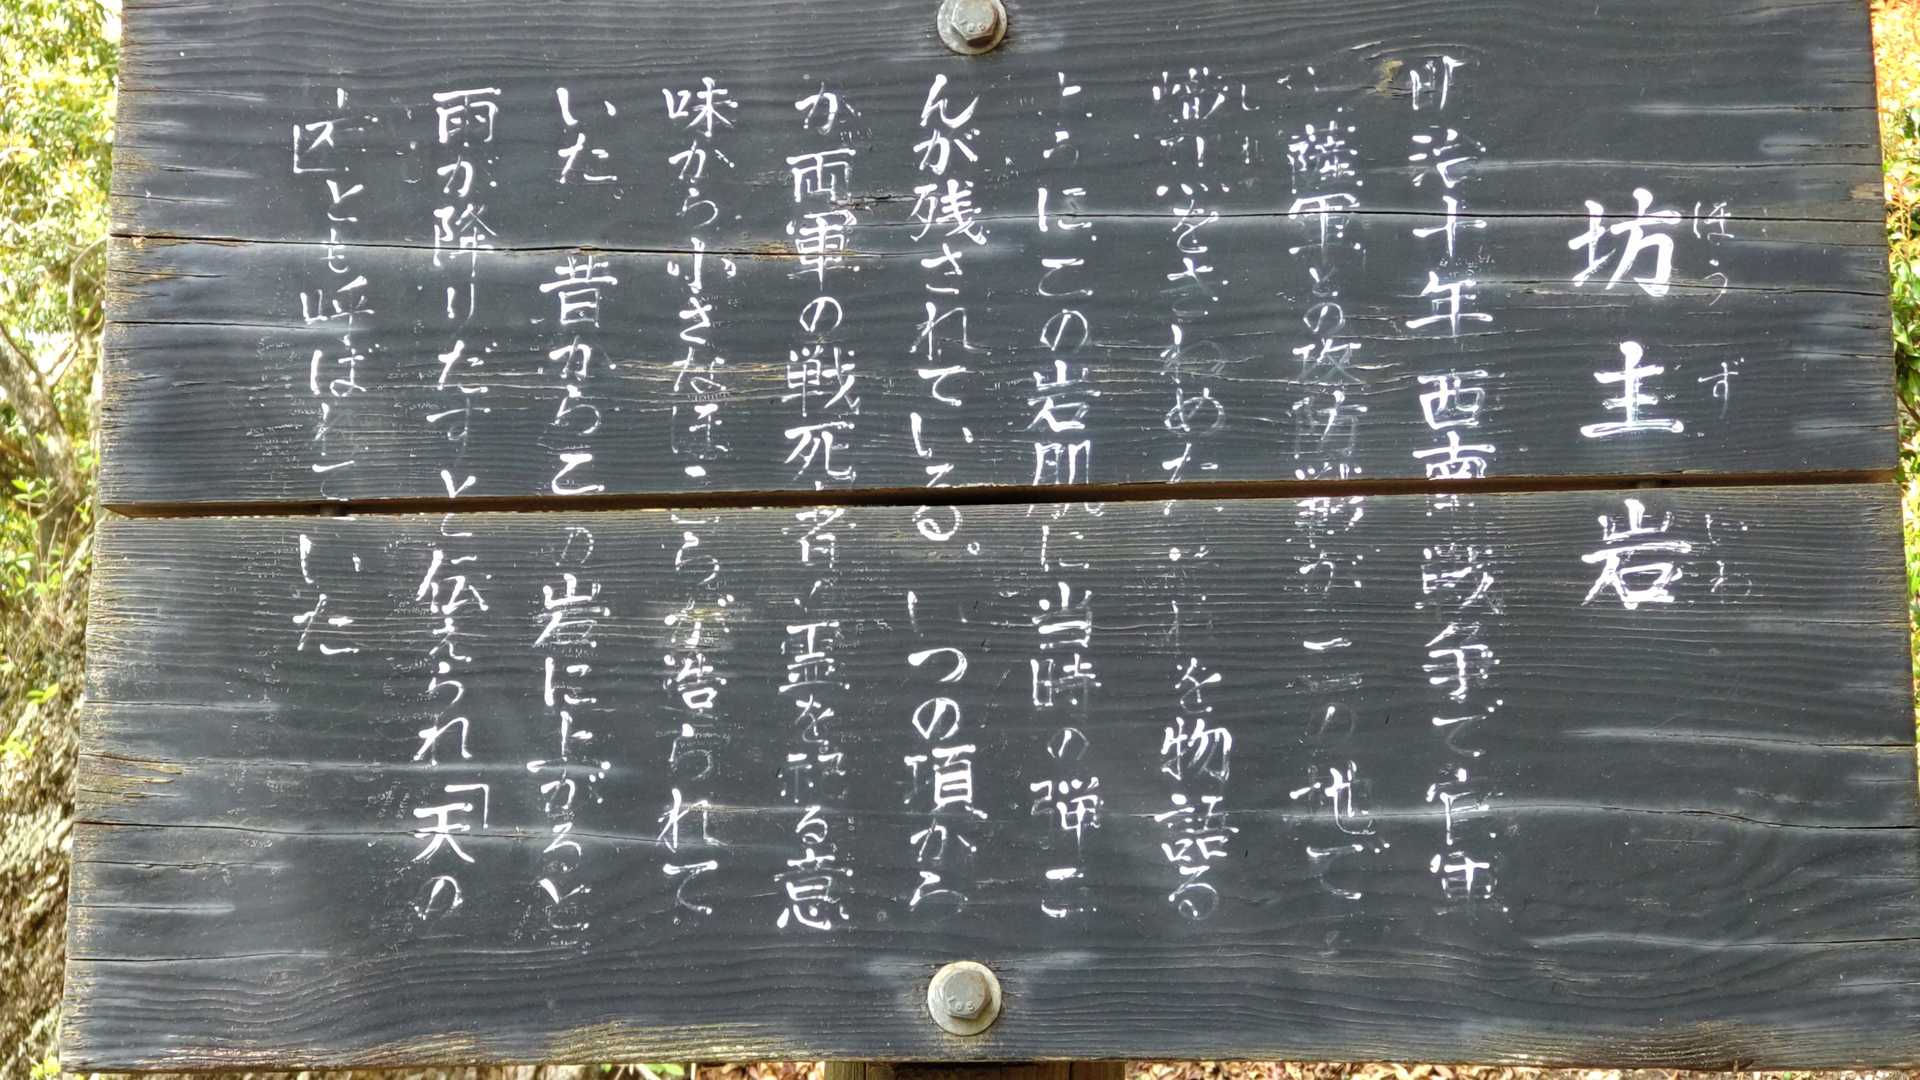 坊主岩
ほうず いわ
明治十年 西南戦争で官軍
と薩軍との攻防戦が この地で
熾烈をきわめた それを物語る
ようにこの岩肌に当時の弾こ
んが残されている。いつの頃から
か両軍の戦死者の霊を祀る意
味から小さなほこらが造られて
いた。昔からこの岩に上がると
雨が降りだすと伝えられ「天の
とも呼ばれていた